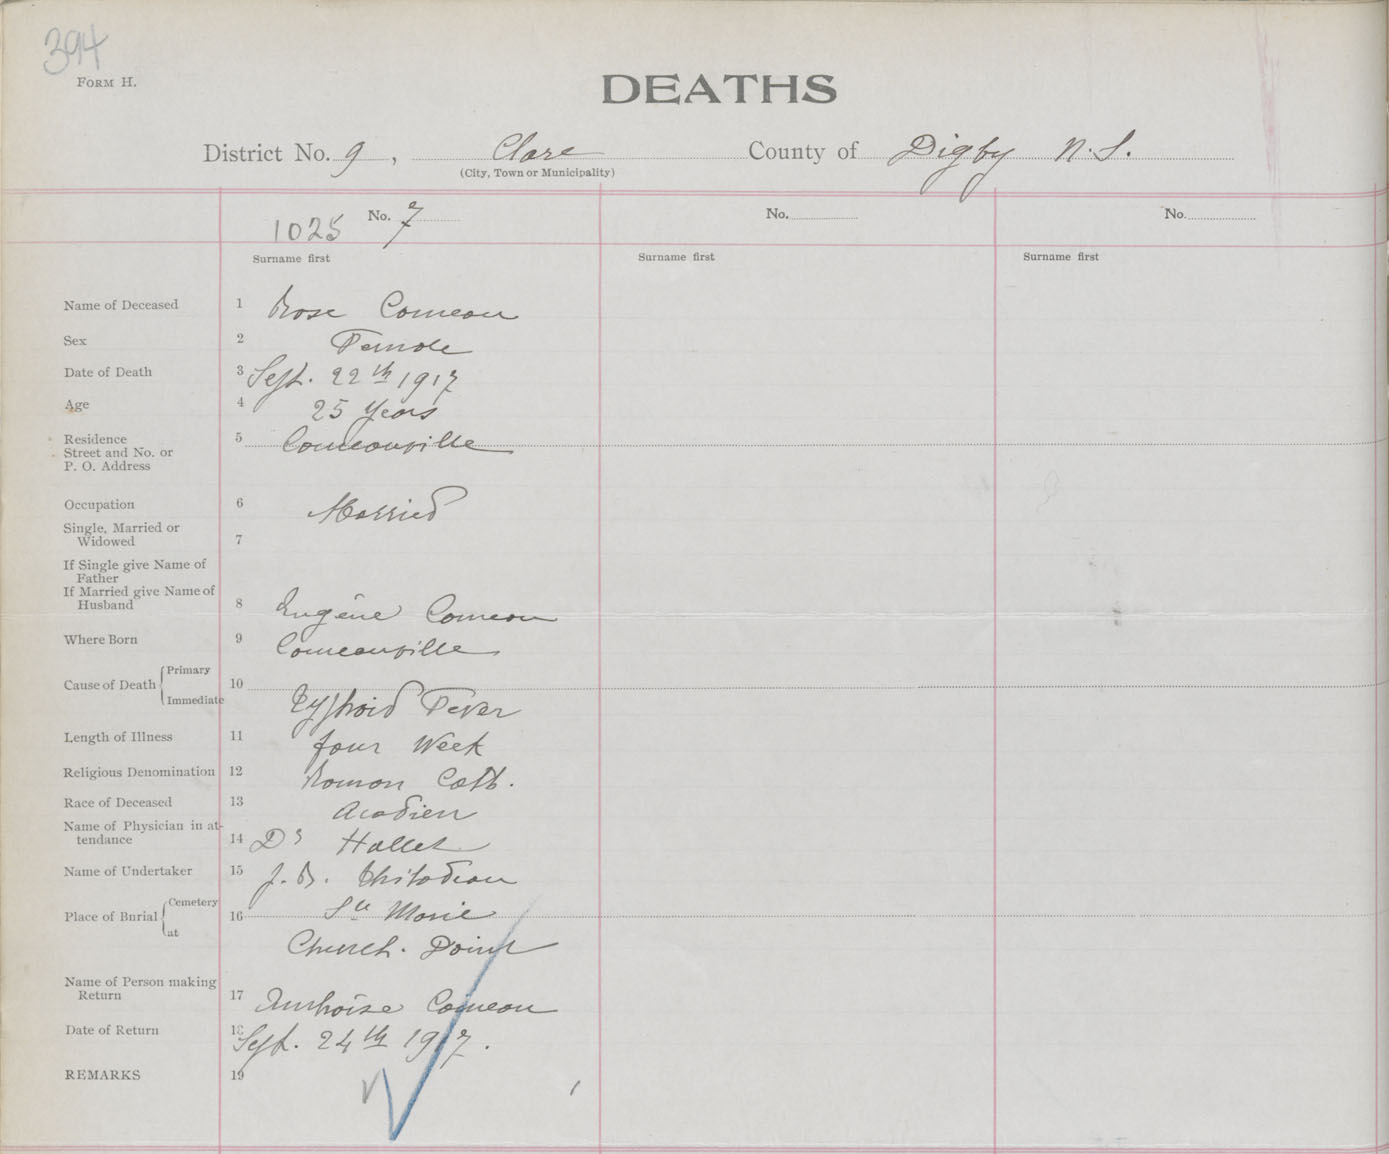 394
FORM H.
DEATHS
District No. 9, Clare County of Digby N.S.
(City, Town or Municipality)
1025 No. 7 No. No.
Surname first Surname first Surname first
Name of Deceased 1 Rose Comeau
Sex 2 Female
Date of Death 3 Sept. 22th 1917
Age 4 25 Years
Residence 5 Comeauville
Street and No. or
P. O. Address
Occupation 6 Married
Single, Married or
Widowed 7
If Single give Name of
Father
If Married give Name of
Husband 8 Eugène Comeau
Where Born 9 Comeauville
Cause of Death Primary 10
Immediate Typhoid Fever
Length of Illness 11 four Week
Religious Denomination 12 Roman Cath.
Race of Deceased 13 Acadien
Name of Physician in at-
tendance 14 Dr Hallet
Name of Undertaker 15 J. B. Thibodeau
Place of Burial Cemetery 16 Ste Marie
at Church. Point
Name of Person making
Return 17 Ambroise Comeau
Date of Return 18 Sept. 24th 1917.
REMARKS 19